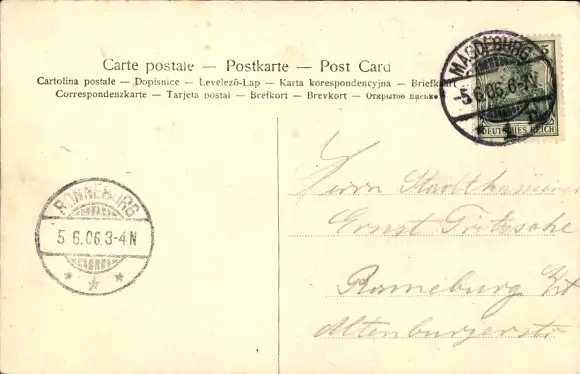 Carte postale — Postkarte — Post Card
Cartolina postale — Dopisnice — Levelező-Lap — Karta korespondencyjna — Briefkaart
Correspondenzkarte — Tarjeta postal — Brefkort — Brevkort — Открытое письмо.
MAGDEBURG
5.6.06.6-7N
1
5
DEUTSCHES REICH
RONNEBURG
5.6.06.3-4N
Herrn Stadtkämmerer
Ernst Fritzsche
Ronneburg
Altenburgerstr